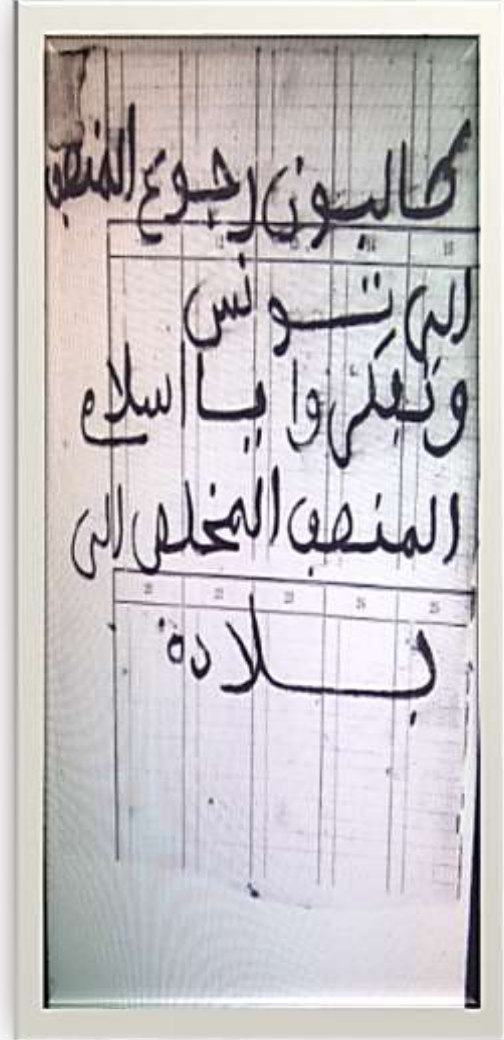 طالبون رجوع المنصف
الى تونس
وتفكروا يا اسلام
المنصف المخلص الى
بلادة